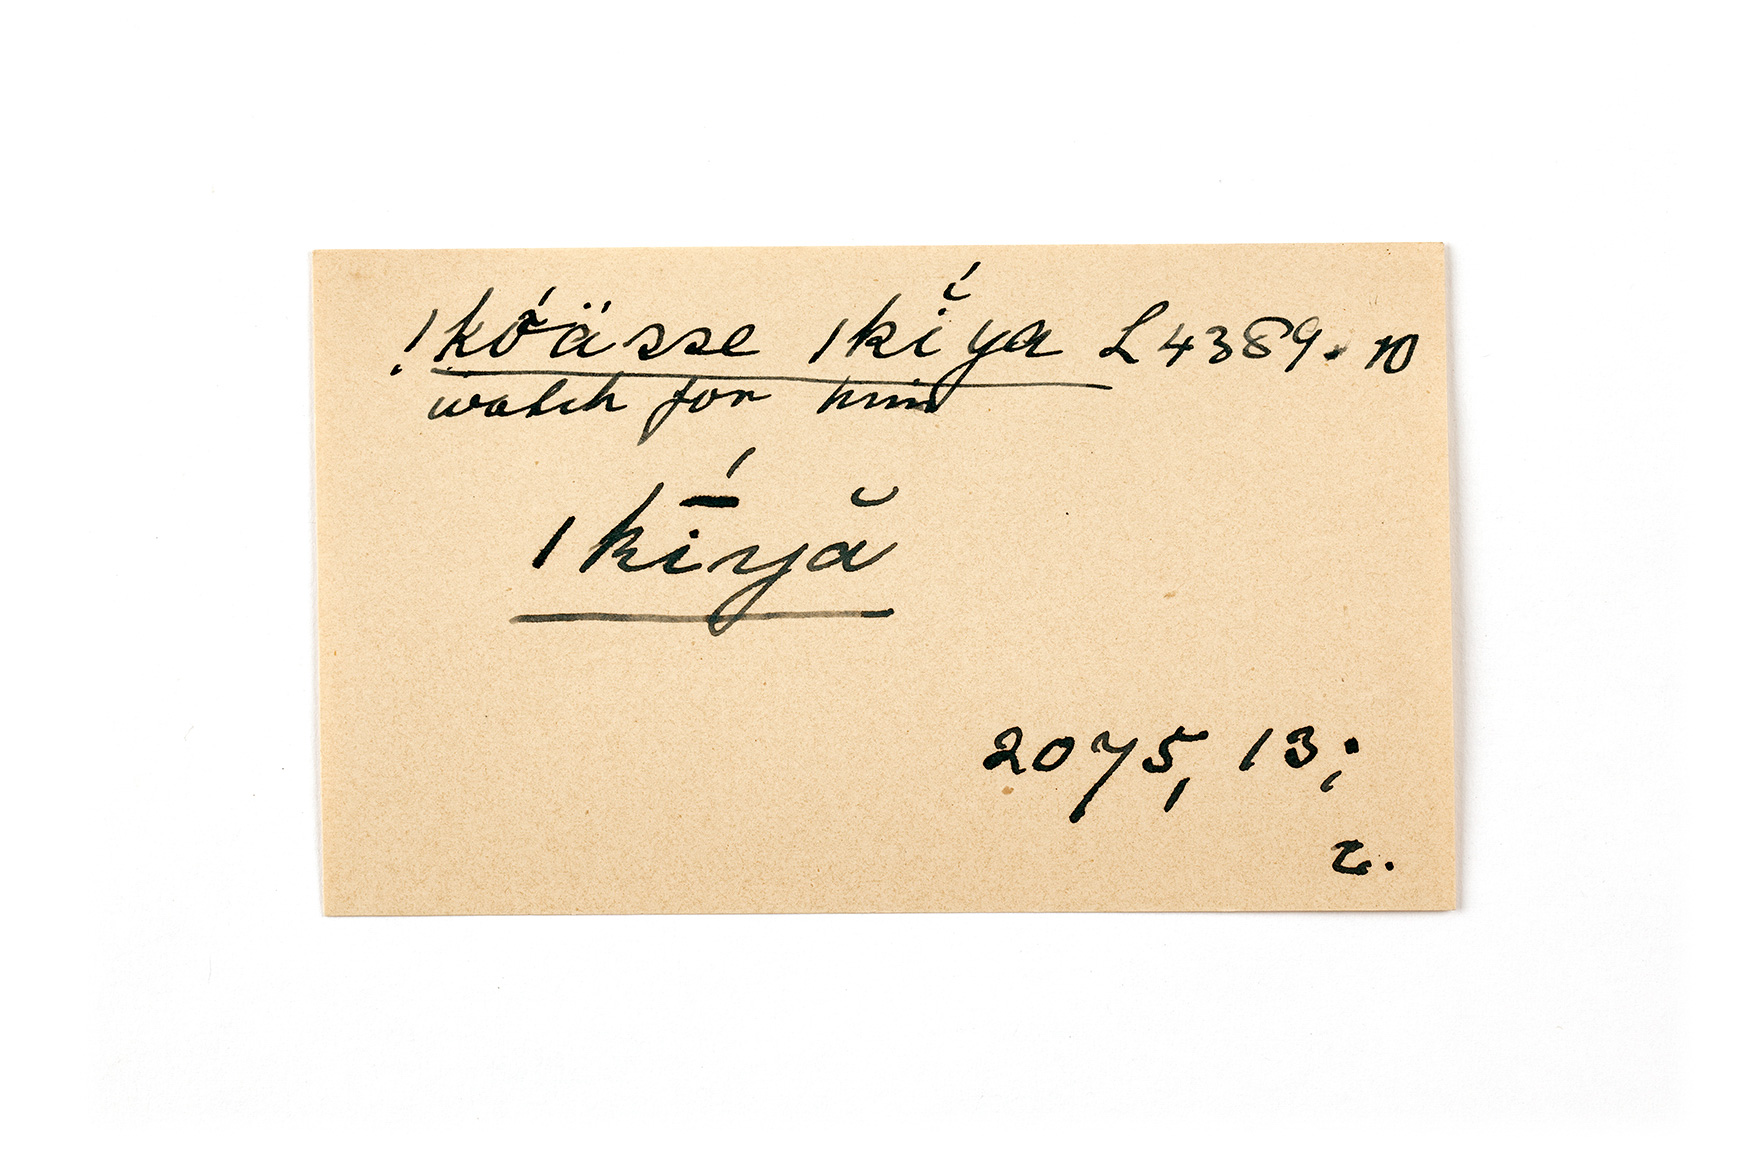 !kṍä̈sse |kĭ́ya L4389. 10
watch for him
|kī́yă
2075, 13;
r.